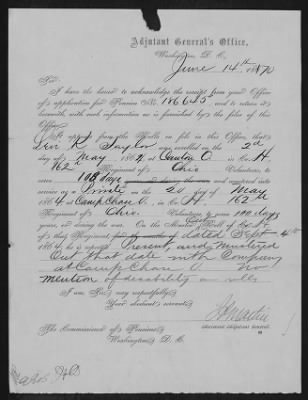 Adjutant General's Office,
Washington, D. C.,
June 14th, 1870
Sir:
I have the honor to acknowledge the receipt from your Office
of application for Pension No. 186645, and to return it
herewith, with such information as is furnished by the files of this
Office.
It appears from the Rolls on file in this Office, that
Levi R Taylor was enrolled on the 2d
day of May 1864, at Canton O. in Co. H
162 Regiment of Ohio Volunteers, to
serve 100 days and mustered into
service as a Private on the 20 day of May
1864, at Camp Chase O. in Co. H 162
Regiment of Ohio Volunteers, to serve 100 days
On the Muster Out Roll of Co. H
of that Regiment dated Sept 4th
1864, he is reported Present, and Mustered
Out that date with Company
at Camp Chase O. No
mention of disability on rolls
I am, Sir, very respectfully,
Your obedient servant,
Assistant Adjutant General.
The Commissioner of Pensions,
Washington, D. C.